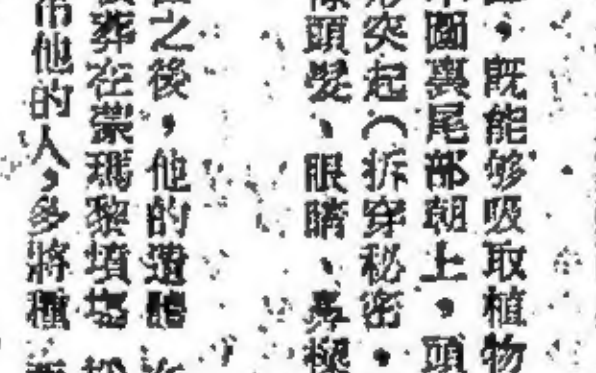 ，既能够吸取植物
圖裏尾部朝上，頭
突起（拆穿秘密．
頭髮、眼睛、鼻
之後，他的遺體
葬在崇瑪黎墳塲
他的人，多將種